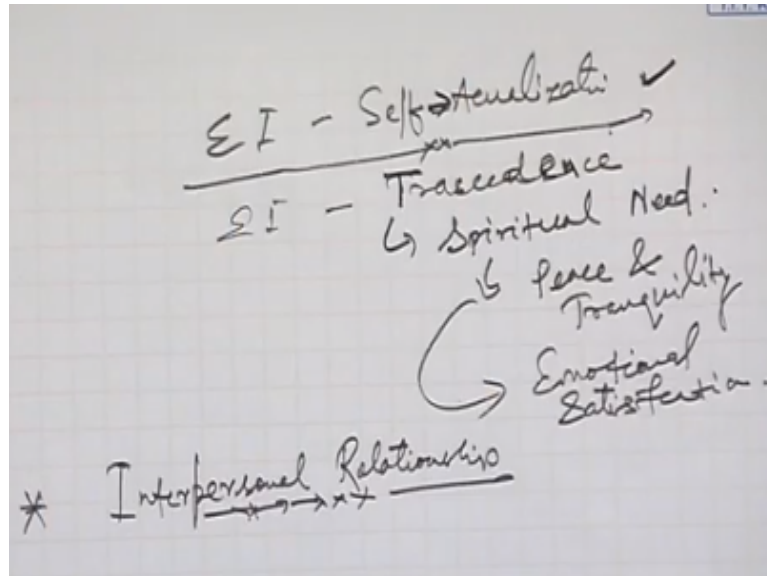 EI - Self-Acualizati ✓
EI - Trascedence
↳ Spiritual Need.
↳ Peace &
Tranquility
Emotional
Satisfaction.
* Interpersonal Relationship